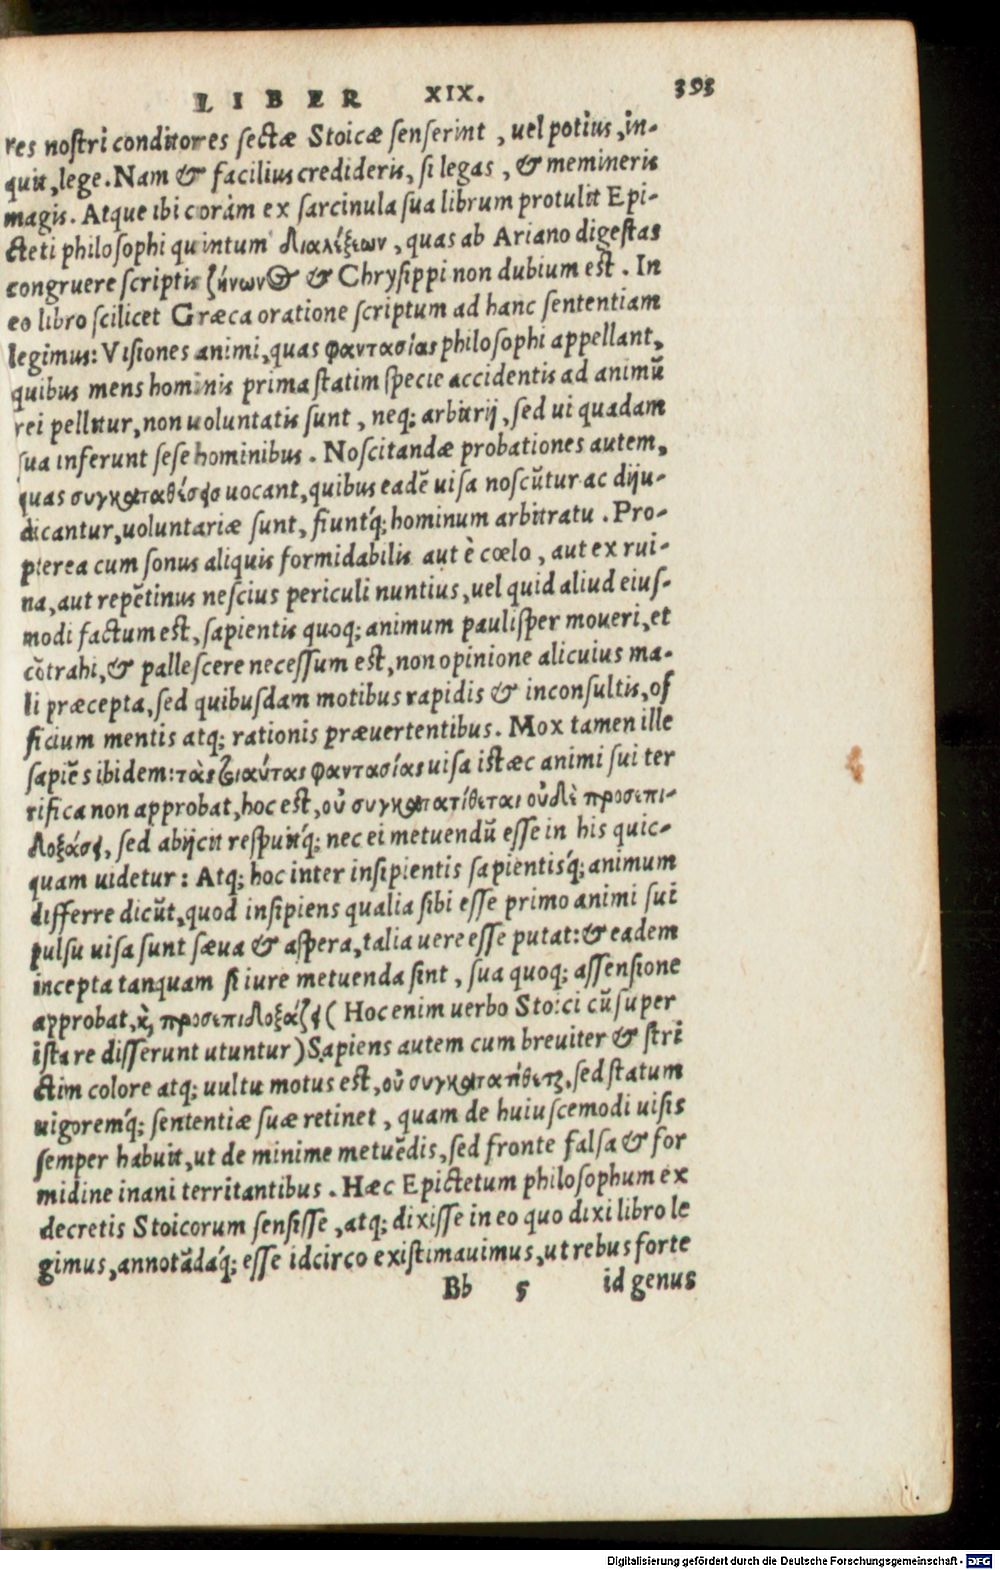 LIBER XIX. 393
res nostri conditores sectæ Stoicæ senserint, uel potius, in-
quit, lege. Nam & facilius credideris, si legas, & memineris
magis. Atque ibi coràm ex sarcinula sua librum protulit Epi-
cteti philosophi quintum διαλέξεων, quas ab Ariano digestas
congruere scriptis ζήνωνος & Chrysippi non dubium est. In
eo libro scilicet Græca oratione scriptum ad hanc sententiam
legimus: Visiones animi, quas φαντασίας philosophi appellant,
quibus mens hominis prima statim specie accidentis ad animũ
rei pellitur, non uoluntatis sunt, neq; arbitrij, sed ui quadam
sua inferunt sese hominibus. Noscitandæ probationes autem,
quas συγκαταθέσεις uocant, quibus eadẽ uisa noscũtur ac diju-
dicantur, uoluntariæ sunt, fiuntq́; hominum arbitratu. Pro-
pterea cum sonus aliquis formidabilis aut è cœlo, aut ex rui-
na, aut repẽtinus nescius periculi nuntius, uel quid aliud eius-
modi factum est, sapientis quoq; animum paulisper moueri, et
cõtrahi, & pallescere necessum est, non opinione alicuius ma-
li præcepta, sed quibusdam motibus rapidis & inconsultis, of
ficium mentis atq; rationis præuertentibus. Mox tamen ille
sapiẽs ibidem: τὰς τοιαύτας φαντασίας uisa istæc animi sui ter
rifica non approbat, hoc est, οὐ συγκατατίθεται οὐδὲ προσεπι-
δοξάσει, sed abijcit respuitq́; nec ei metuendũ esse in his quic-
quam uidetur: Atq; hoc inter insipientis sapientisq́; animum
differre dicũt, quod insipiens qualia sibi esse primo animi sui
pulsu uisa sunt sæua & aspera, talia uere esse putat: & eadem
incepta tanquam si iure metuenda sint, sua quoq; assensione
approbat, κὶ προσεπιδοξάζει (Hoc enim uerbo Stoici cũ super
ista re disserunt utuntur) Sapiens autem cum breuiter & stri
ctim colore atq; uultu motus est, οὐ συγκατατίθεται, sed statum
uigoremq́; sententiæ suæ retinet, quam de huiuscemodi uisis
semper habuit, ut de minime metuẽdis, sed fronte falsa & for
midine inani territantibus. Hæc Epictetum philosophum ex
decretis Stoicorum sensisse, atq; dixisse in eo quo dixi libro le
gimus, annotãdaq́; esse idcirco existimauimus, ut rebus forte
Bb 5 id genus
Digitalisierung gefördert durch die Deutsche Forschungsgemeinschaft - DFG